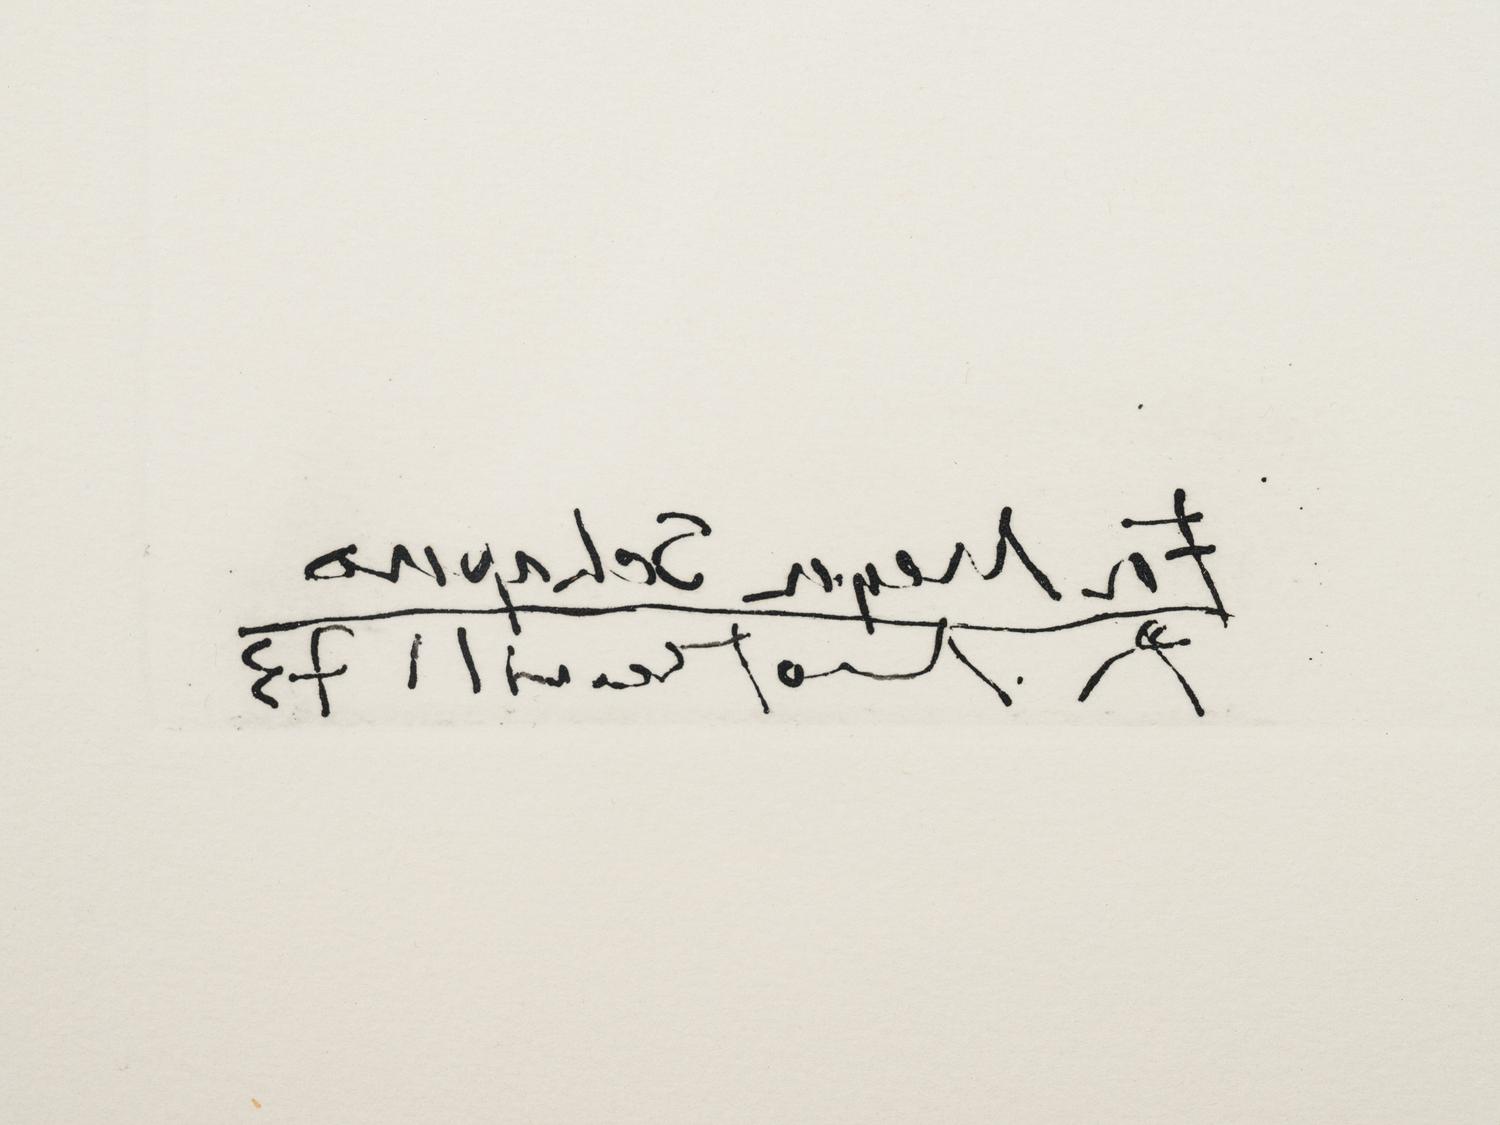 For Meyer Schapiro
R. Motherwell 73